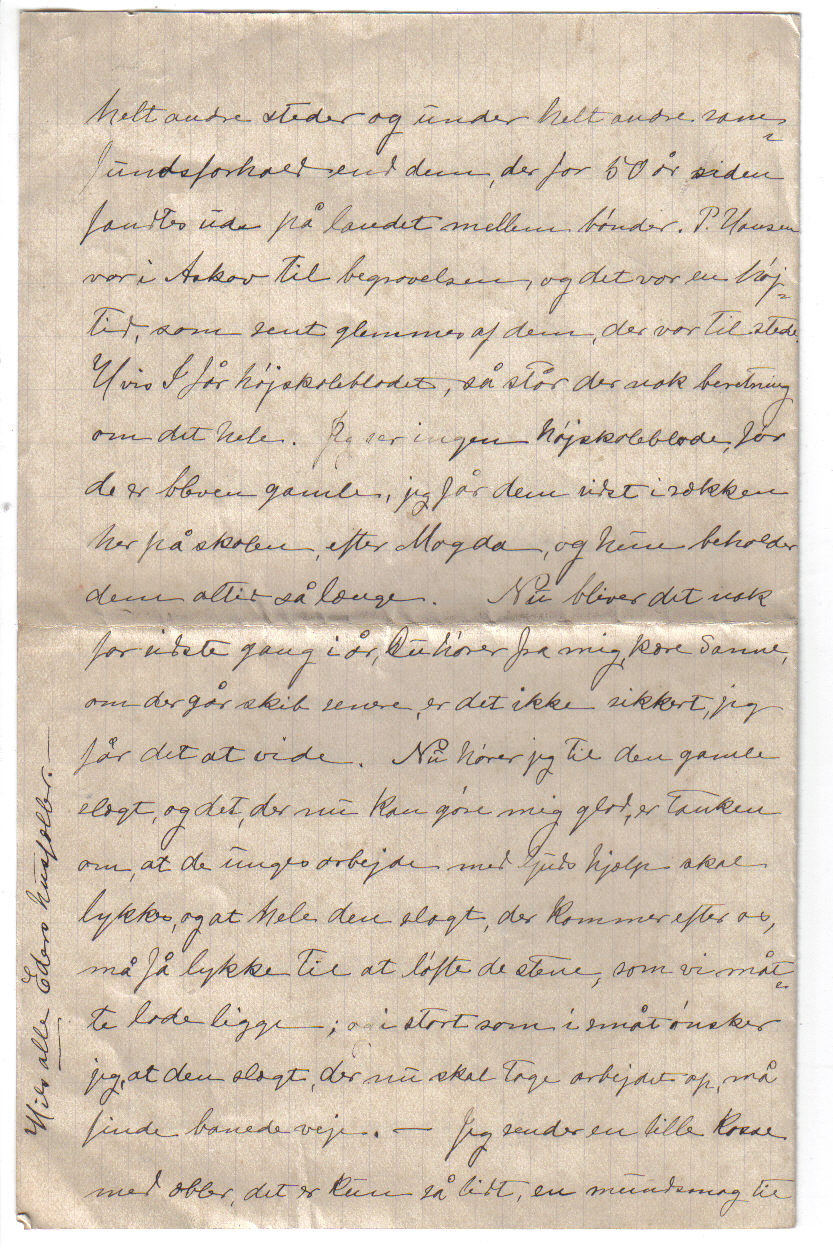 helt andre steder og under helt andre sam=
fundsforhold end dem, der for 50 år siden
fandtes ude på landet mellem bønder. P. Hansen
var i Askov til begravelsen, og det var en høj=
tid, som sent glemmes af dem, der var til stede.
Hvis I får højskolebladet, så står der nok beretning
om det hele. Jeg ser ingen højskoleblade, før
de er bleven gamle, jeg får dem sidst i rækken
her på skolen, efter Magda, og hun beholder
dem altid så længe. Nu bliver det nok
for sidste gang i år, Du hører fra mig, kære Sanne,
om der går skib senere, er det ikke sikkert, jeg
får det at vide. Nu hører jeg til den gamle
slægt, og det, der nu kan gøre mig glad, er tanken
om, at de unges arbejde med Guds hjælp skal
lykkes, og at hele den slægt, der kommer efter os,
må få lykke til at løfte de stene, som vi måt=
te lade ligge; og i stort som i småt ønsker
jeg, at den slægt, der nu skal tage arbejdet op, må
finde banede veje. — Jeg sender en lille kasse
med æbler, det er kun så lidt, en mundsmag til
Hils alle Eders husfæller. —